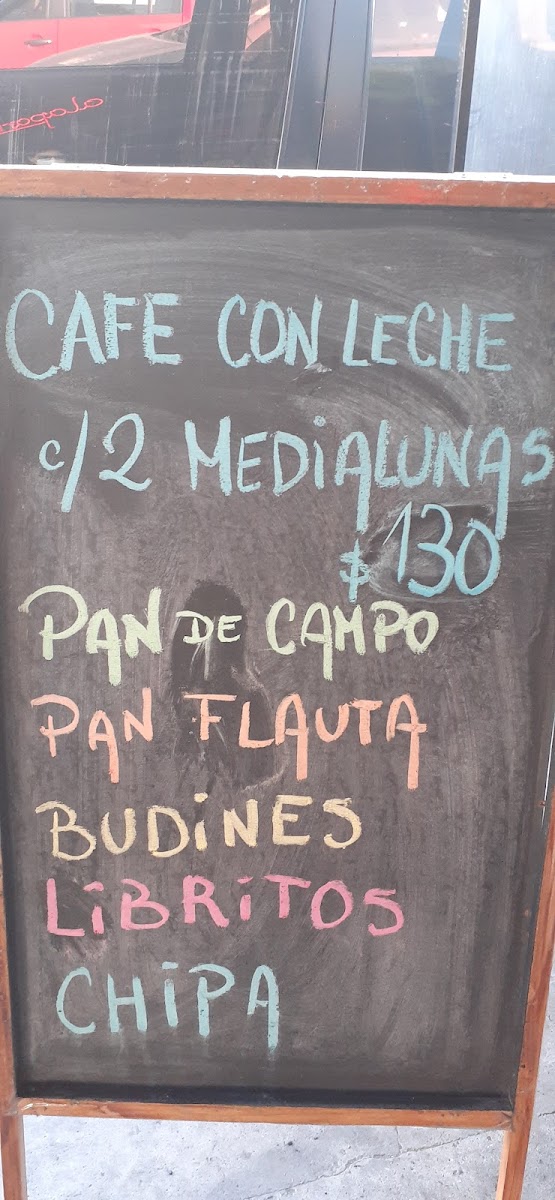 CAFE CON LECHE
c/2 MEDiALUNAS
$130
PAN DE CAMPO
PAN FLAUTA
BUDiNES
LiBRiTOS
CHiPA